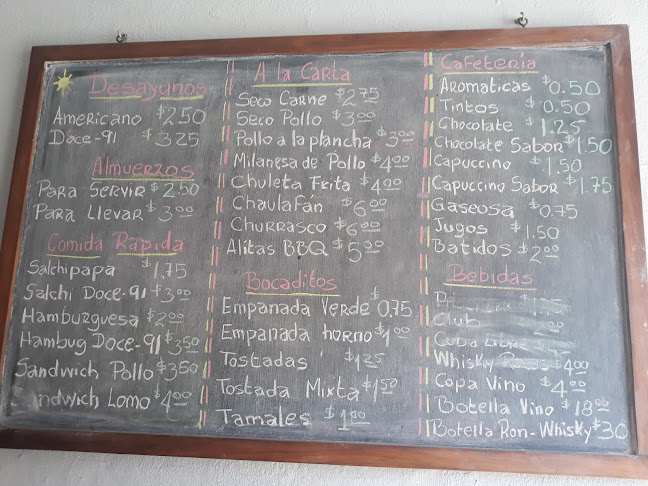 Desayunos
Americano $2.50
Doce-91 $3.25
Almuerzos
Para Servir $2.50
Para Llevar $3.00
Comida Rápida
Salchipapa $1.75
Salchi Doce-91 $3.00
Hamburguesa $2.00
Hambug Doce-91 $3.50
Sandwich Pollo $3.50
Sandwich Lomo $4.00
A la Carta
Seco Carne $2.75
Seco Pollo $3.00
Pollo a la plancha $3.00
Milanesa de Pollo $4.00
Chuleta Frita $4.00
Chaulafán $6.00
Churrasco $6.00
Alitas BBQ $5.00
Bocaditos
Empanada Verde $0.75
Empanada horno $1.00
Tostadas $1.25
Tostada Mixta $1.50
Tamales $1.00
Cafetería
Aromaticas $0.50
Tintos $0.50
Chocolate $1.25
Chocolate Sabor $1.50
Capuccino $1.50
Capuccino Sabor $1.75
Gaseosa $0.75
Jugos $1.50
Batidos $2.00
Bebidas
Club
Cuba Libre
Whisky $4.00
Copa Vino $4.00
Botella Vino $18.00
Botella Ron-Whisky $30